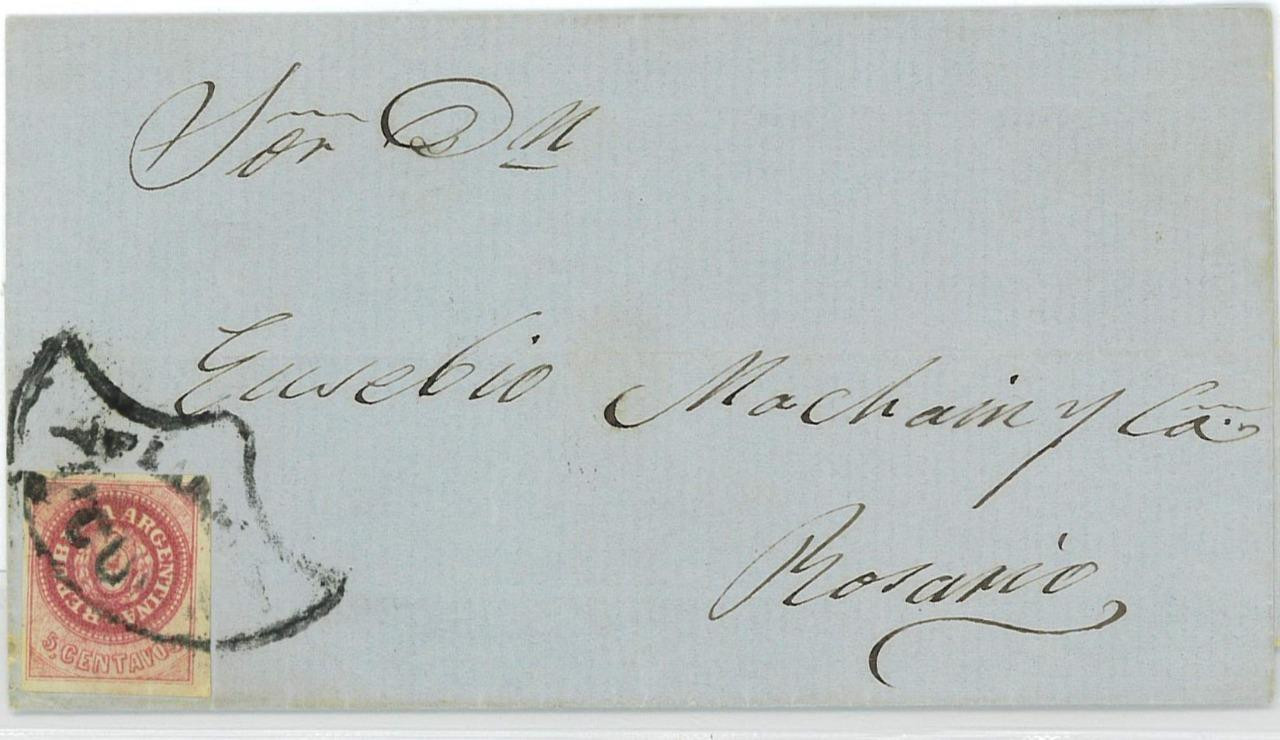 Sōr Dn
Eusebio Machain y Ca
Rosario
REPUBLICA ARGENTINA
5, CENTAVOS